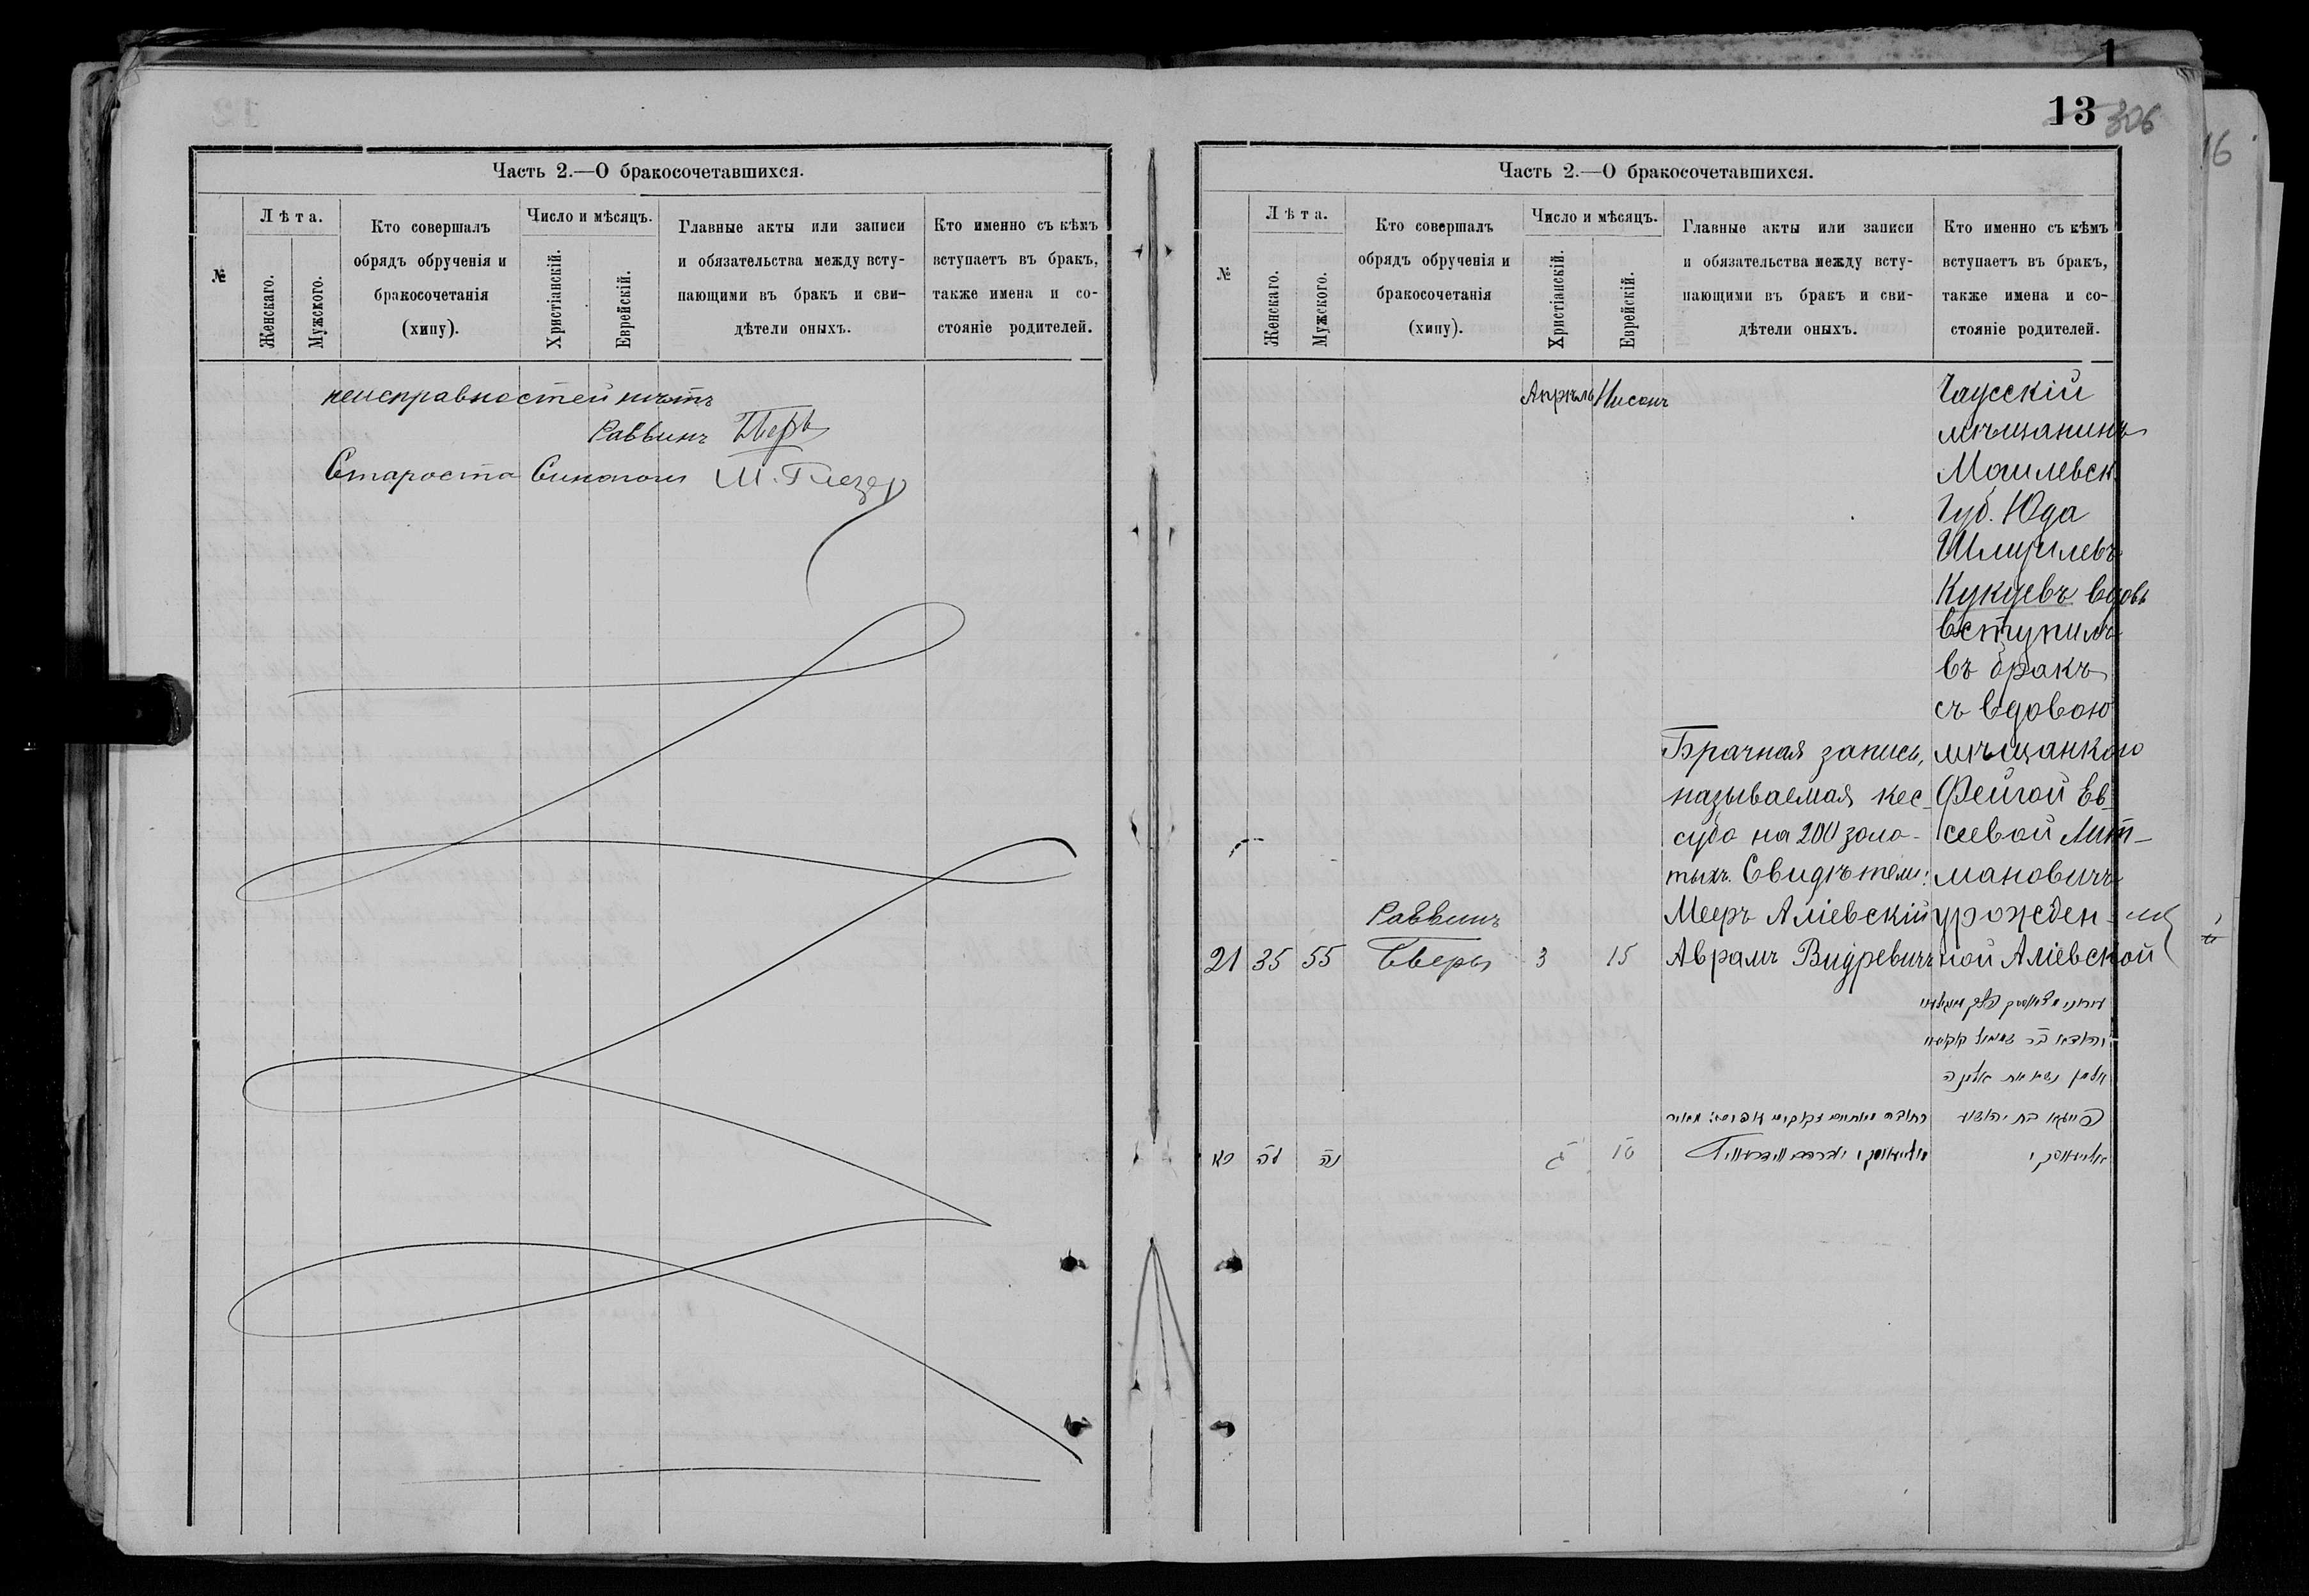 Часть 2.—О бракосочетавшихся.
№
Лѣта.
Женскаго.
Мужского.
Кто совершалъ
обрядъ обрученія и
бракосочетанія
(хипу).
Число и мѣсяцъ.
Христіанскій.
Еврейскій.
Главные акты или записи
и обязательства между всту-
пающими въ бракъ и сви-
дѣтели оныхъ.
Кто именно съ кѣмъ
вступаетъ въ бракъ,
также имена и со-
стояніе родителей.
неисправностей нѣтъ
Раввинъ
Староста Синагоги М. Глезер
13 306
16
Часть 2.—О бракосочетавшихся.
№
Лѣта.
Женскаго.
Мужского.
Кто совершалъ
обрядъ обрученія и
бракосочетанія
(хипу).
Число и мѣсяцъ.
Христіанскій.
Еврейскій.
Главные акты или записи
и обязательства между всту-
пающими въ бракъ и сви-
дѣтели оныхъ.
Кто именно съ кѣмъ
вступаетъ въ бракъ,
также имена и со-
стояніе родителей.
21
35
55
Раввинъ
Апрѣль
3
Нисонъ
15
Брачная запись,
называемая кес-
суба на 200 золо-
тыхъ. Свидѣтели:
Мееръ Аліевскій
Аврамъ Видревичъ
Чаусскій
мѣщанинъ
Могилевск.
Губ. Юда
Шмуилевъ
Кукуевъ вдовъ
вступилъ
въ бракъ
съ вдовою
мѣщанкою
Фейгой Ев-
сеевой Лит-
мановичъ
урожден-
ной Аліевской
יהודא בר שמואל
פייגא בת יהושע
כא
לה
נה
ג